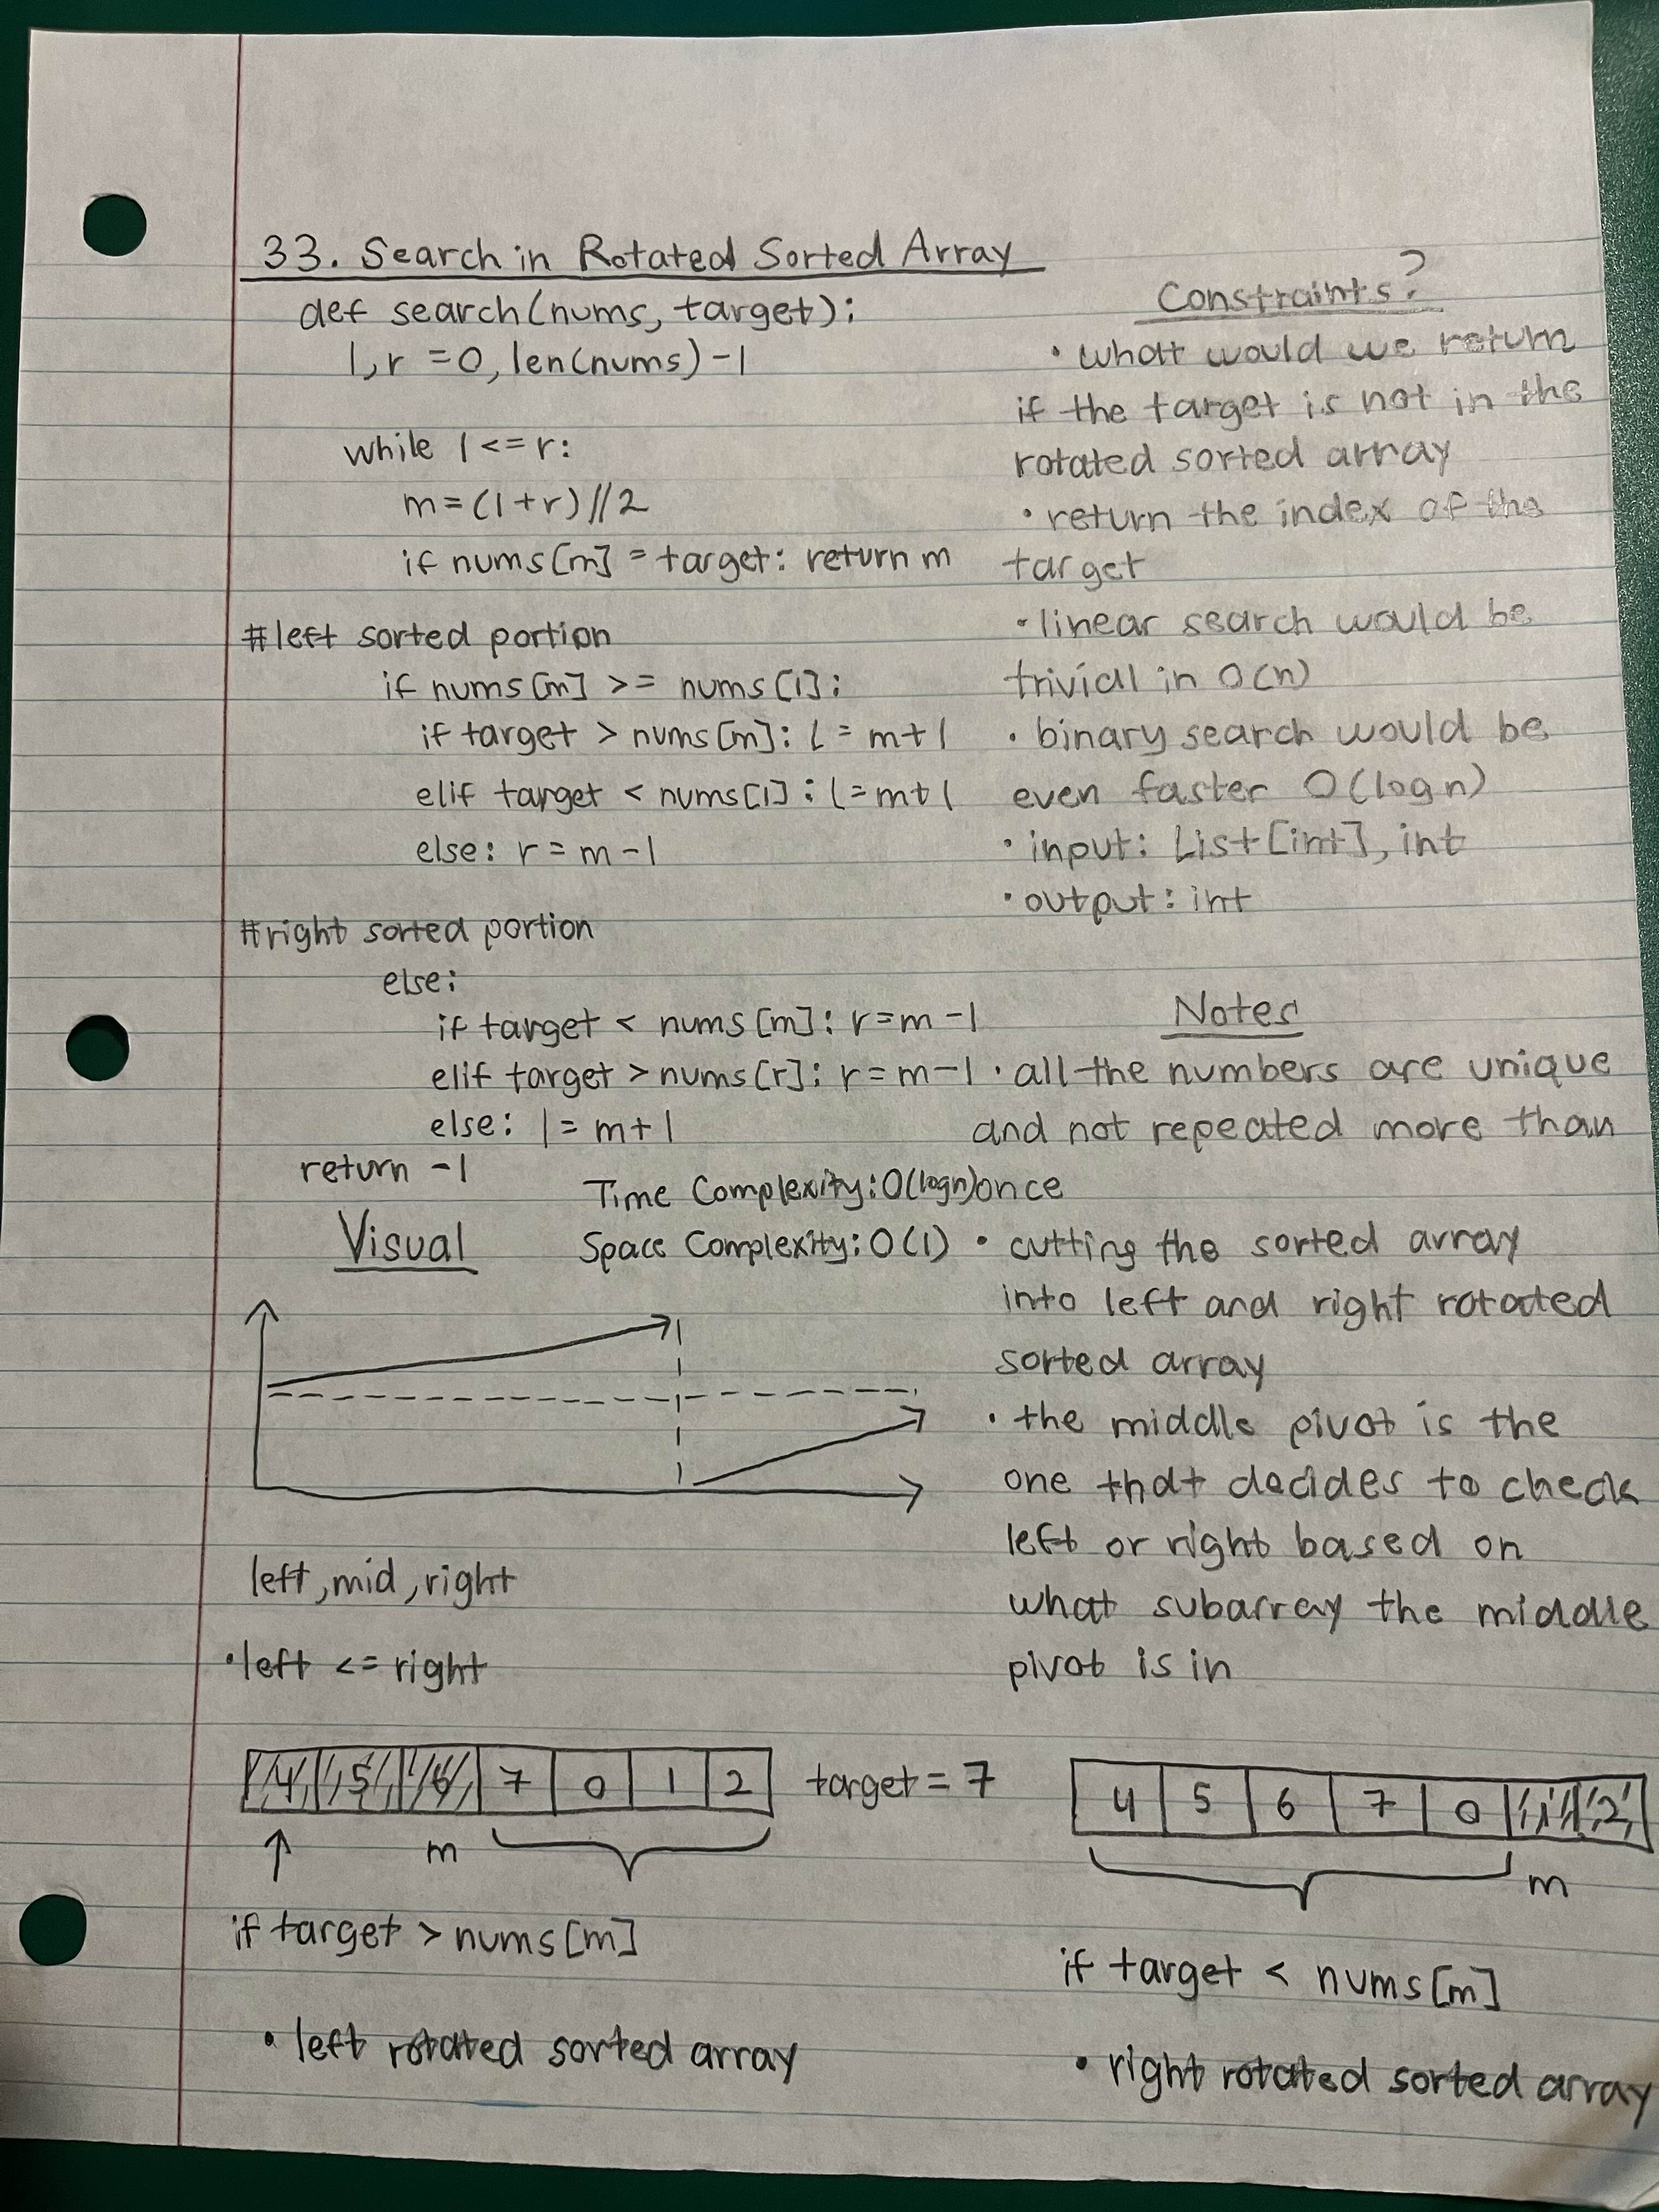 33. Search in Rotated Sorted Array
def search(nums, target):
l,r =0, len(nums) -1
while l <= r:
m = (l+r)//2
if nums[m] = target: return m
#left sorted portion
if nums[m] >= nums[l]:
if target > nums[m]: l = m+1
elif target < nums[l]: l = m+1
else: r = m-1
#right sorted portion
else:
if target < nums[m]: r=m-1
elif target > nums[r]: r=m-1
else: l = m+1
return -1
Time Complexity: O(logn)
Space Complexity: O(1)
Constraints?
• what would we return
if the target is not in the
rotated sorted array
• return the index of the
target
• linear search would be
trivial in O(n)
• binary search would be
even faster O(logn)
• input: List[int], int
• output: int
Notes
• all the numbers are unique
and not repeated more than
once
• cutting the sorted array
into left and right rotated
sorted array
• the middle pivot is the
one that decides to check
left or right based on
what subarray the middle
pivot is in
Visual
left, mid, right
• left <= right
4 5 6 7 0 1 2 target = 7
m
if target > nums[m]
• left rotated sorted array
4 5 6 7 0 1 2
m
if target < nums[m]
• right rotated sorted array